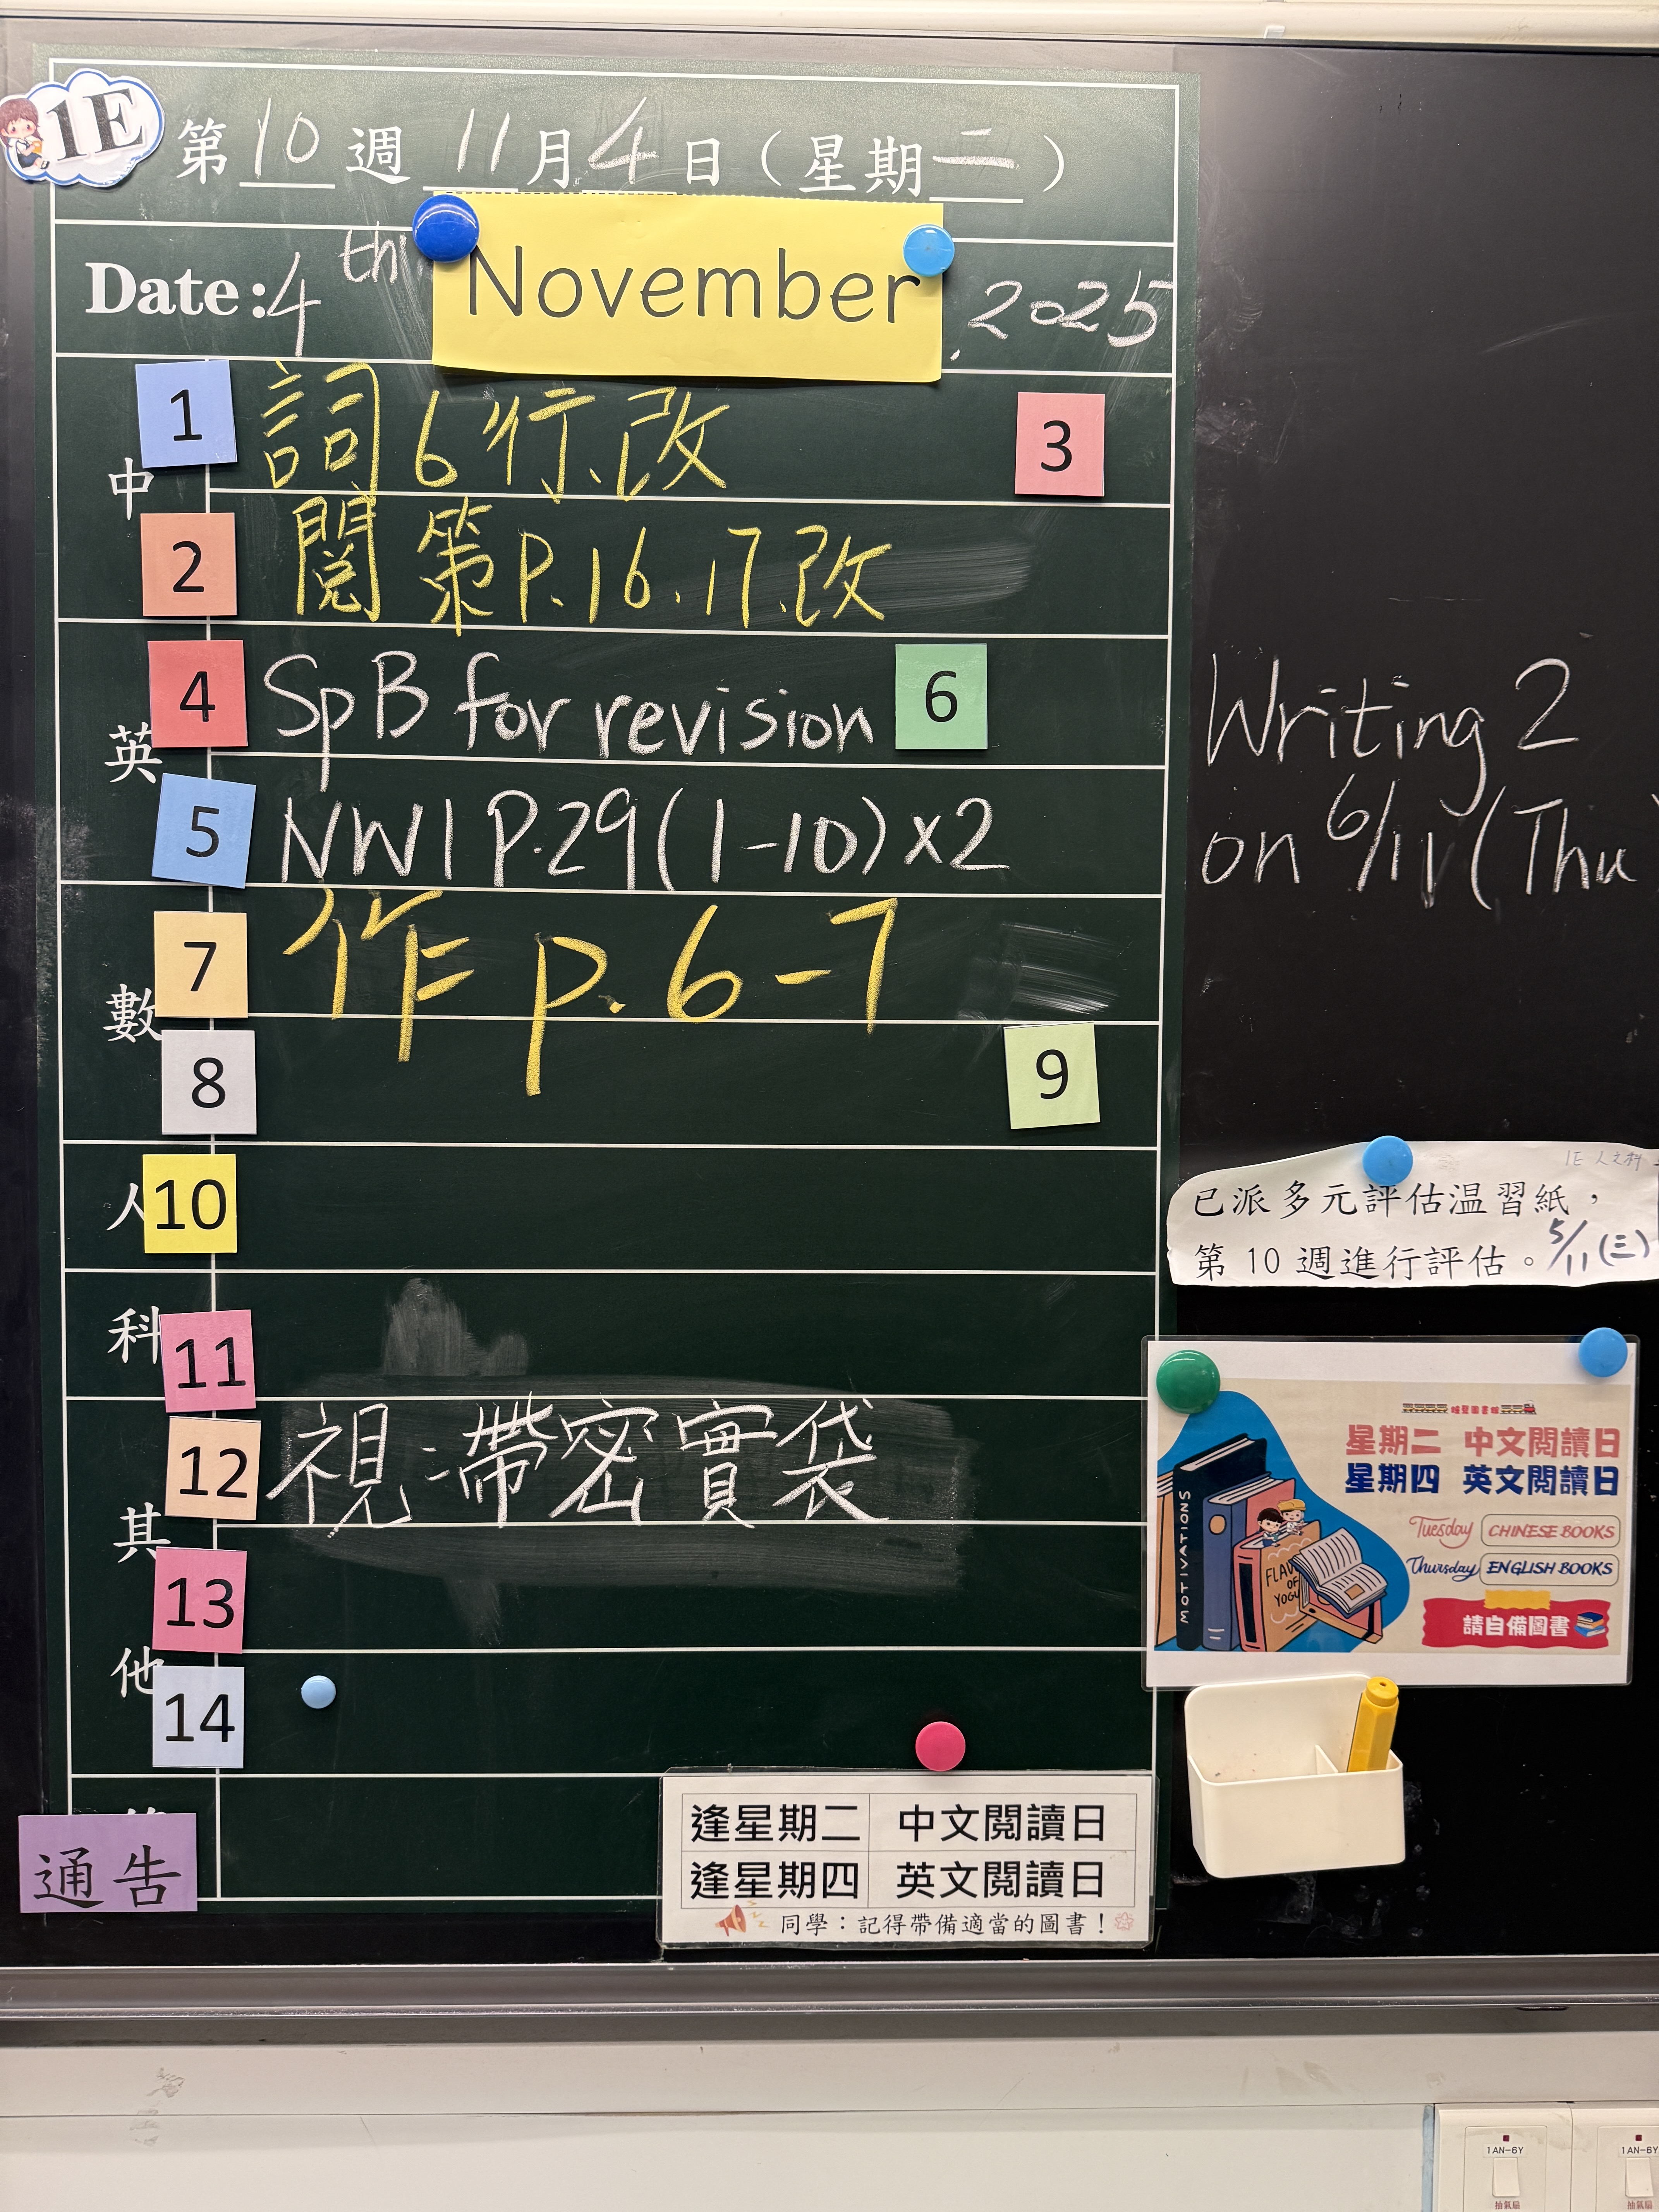 1E 第 10 週 11 月 4 日 (星期二)
Date: 4th November, 2025
中
1 詞 6 行.改 3
2 閱 策 P.16.17.改
英
4 SpB for revision 6
5 NW1 P.29(1-10)x2
數
7 作 p. 6-7
8 9
人 10
科 11
其他
12 視:帶密實袋
13
14
通告
逢星期二 中文閱讀日
逢星期四 英文閱讀日
同學：記得帶備適當的圖書！
Writing 2
on 6/11 (Thu
1E 人文科
已派多元評估温習紙，
第 10 週進行評估。5/11(三)
星期二 中文閱讀日
星期四 英文閱讀日
Tuesday CHINESE BOOKS
Thursday ENGLISH BOOKS
請自備圖書
MOTIVATIONS
FLAV
OF
YOGU
1AN-6Y
抽氣扇
1AN-6Y
抽氣扇